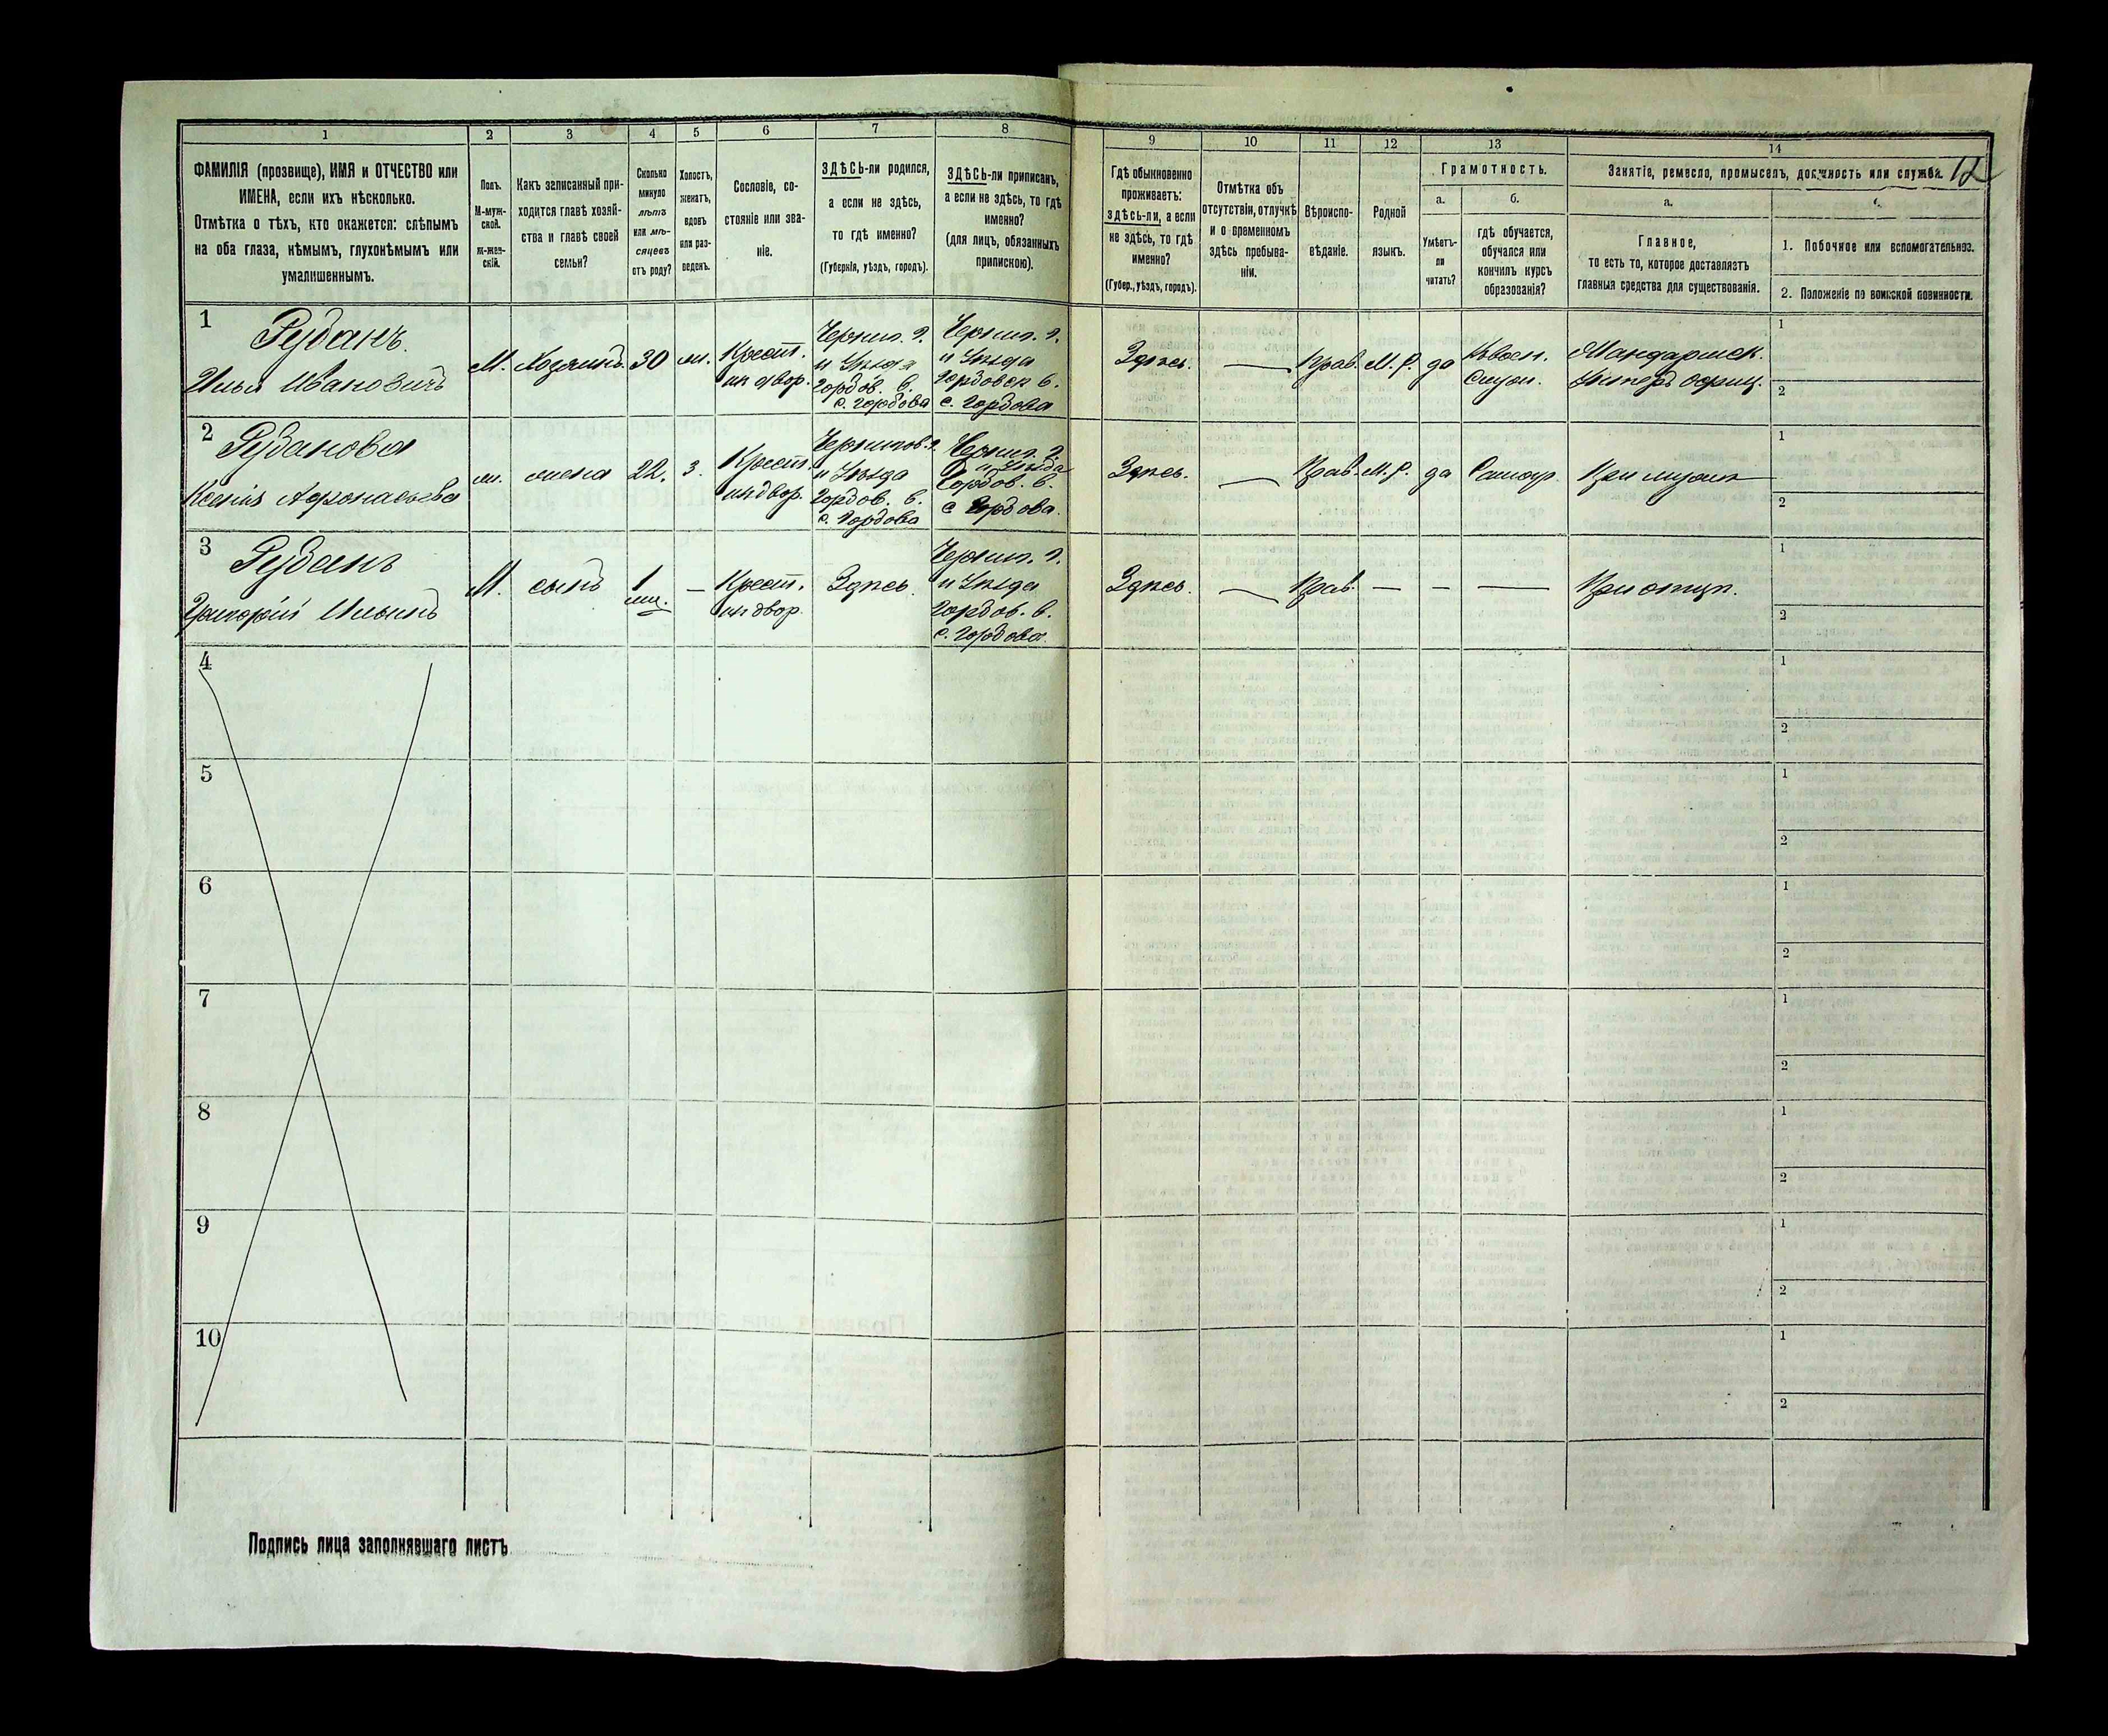 1 2 3 4 5 6 7 8 9 10 11 12 13 14
12
ФАМИЛІЯ (прозвище), ИМЯ и ОТЧЕСТВО или
ИМЕНА, если ихъ нѣсколько.
Отмѣтка о тѣхъ, кто окажется: слѣпымъ
на оба глаза, нѣмымъ, глухонѣмымъ или
умалишеннымъ.
Полъ.
М-муж-
ской.
ж-жен-
скій.
Какъ записанный при-
ходится главѣ хозяй-
ства и главѣ своей
семьи?
Сколько
минуло
лѣтъ
или мѣ-
сяцевъ
отъ роду?
Холостъ,
женатъ,
вдовъ
или раз-
веденъ.
Сословіе, со-
стояніе или зва-
ніе.
ЗДѢСЬ-ли родился,
а если не здѣсь,
то гдѣ именно?
(Губернія, уѣздъ, городъ).
ЗДѢСЬ-ли приписанъ,
а если не здѣсь, то гдѣ
именно?
(для лицъ, обязанныхъ
припискою).
Гдѣ обыкновенно
проживаетъ:
здѣсь-ли, а если
не здѣсь, то гдѣ
именно?
(Губер., уѣздъ, городъ).
Отмѣтка объ
отсутствіи, отлучкѣ
и о временномъ
здѣсь пребыва-
ніи.
Вѣроиспо-
вѣданіе.
Родной
языкъ.
Грамотность.
а.
Умѣетъ-
ли
читать?
б.
гдѣ обучается,
обучался или
кончилъ курсъ
образованія?
Занятіе, ремесло, промыселъ, должность или служба.
а.
Главное,
то есть то, которое доставляетъ
главныя средства для существованія.
1. Побочное или вспомогательное.
2. Положеніе по воинской повинности.
1
Рубанъ.
Илья Ивановичъ
М.
Хозяинъ
30
ж.
Крест.
ик двор.
Черниг. г.
и Уѣзда
Горбов. в.
с. Горбова
Черниг. г.
и Уѣзда
Горбовск в.
с. Горбова
Здѣсь.
—
Прав.
М. Р.
да
1
2
2
Рубанова
Ксенія Афонасьева
ж.
жена
22.
з.
Крест.
ик двор.
Чернигов. г.
и Уѣзда
Горбов. в.
с. Горбова
Черниг. г.
и Уѣзда
Горбов. в.
с Горбова.
Здѣсь.
—
Прав.
М. Р.
да
При мужѣ
1
2
3
Рубанъ
Григорій Ильинъ
М.
сынъ
1
мц.
—
Крест.
ик двор.
Здѣсь
Черниг. г.
и Уѣзда
Горбов. в.
с. Горбова.
Здѣсь.
—
Прав.
—
—
—
При отцѣ.
1
2
4
1
2
5
1
2
6
1
2
7
1
2
8
1
2
9
1
2
10
1
2
Подпись лица заполнявшаго листъ